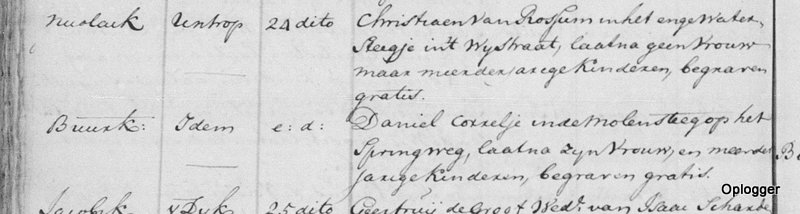 Nicolaik Untrop 24 dito Christiaen van Rossum in het enge Water
steegje int Wystraat, laat na geen Vrouw
maar meerderjarige Kinderen, begraven
gratis.
Buurk: Idem e: d: Daniel Corselje in de Molensteeg op het
Springweg, laat na zyn Vrouw, en meerder
jarige Kinderen, begraven gratis.
Jacobik v Dyk 25 dito Geertruij de Groot Wed: van Isaac
Oplogger